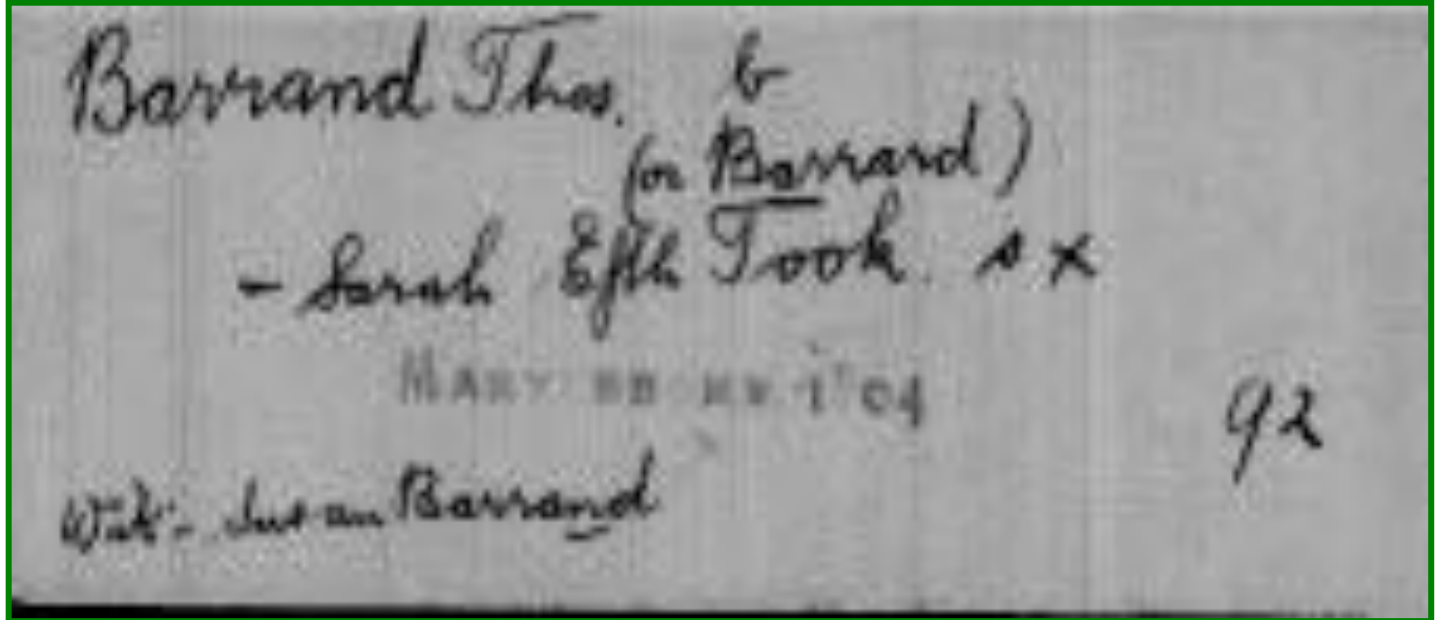 Barrand Thos. b
(or Barrard)
- Sarah Efth Took. s x
MARY
92
Wit:- Susan Barrand